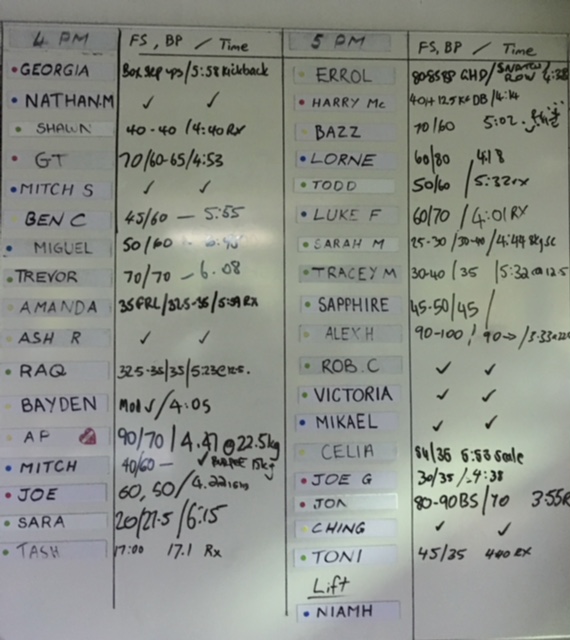 4 PM FS, BP / Time
GEORGIA Box step ups/5:58 Kickback
NATHAN.M ✓ ✓
SHAWN 40-40 /4:40 RX
GT 70/60-65/4:53
MITCH S ✓ ✓
BEN C 45/60 — 5:55
MIGUEL 50/60
TREVOR 70/70 - 6.08
AMANDA 35FRL/32.5-35/5:59 RX
ASH R ✓ ✓
RAQ 32.5-35/35/5:23@12.5.
BAYDEN Mod ✓/4:05
AP 90/70/4.47 @ 22.5kg
MITCH 40/60— ✓ PURPLE 15kg
JOE 60, 50/4.22
SARA 20/27.5/6:15
TASH 17:00 17.1 Rx
5 PM FS, BP / Time
ERROL GHD/ ROW
HARRY Mc 40/+12.5KG DB/4:14
BAZZ 70/60 5:02.
LORNE 60/80 4:18
TODD 50/60 /5:32rx
LUKE F 60/70 /4:01 RX
SARAH M 25-30/30-40/4:44
TRACEY M 30-40/35 /5:32@12.5
SAPPHIRE 45-50/45/
ALEX H 90-100/ 90
ROB.C ✓ ✓
VICTORIA ✓ ✓
MIKAEL ✓ ✓
CELIA 34/35 5:53 Scale
JOE G 30/35/-4:38
JON 80-90BS/70 3:55R
CHING ✓ ✓
TONI 45/35 4:00 RX
Lift
NIAMH